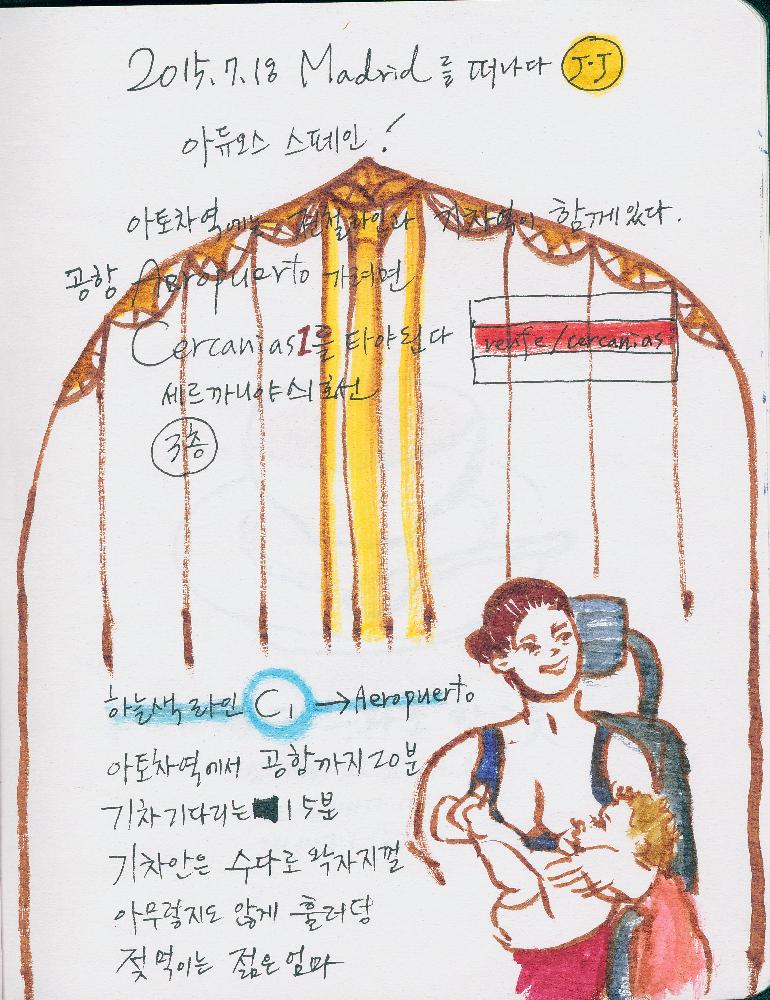 2015.7.18 Madrid를 떠나다 J.J
아듀오스 스페인!
아토차역에는 전철라인과 기차역이 함께 있다.
공항 Aeropuerto 가려면
Cercanias1를 타야된다
renfe/cercanias
세르까니아스 1호선
3층
하늘색 라인 C1 → Aeropuerto
아토차역에서 공항까지 20분
기차 기다리는 15분
기차안은 수다로 왁자지껄
아무렇지도 않게 훌러덩
젖먹이는 젊은 엄마